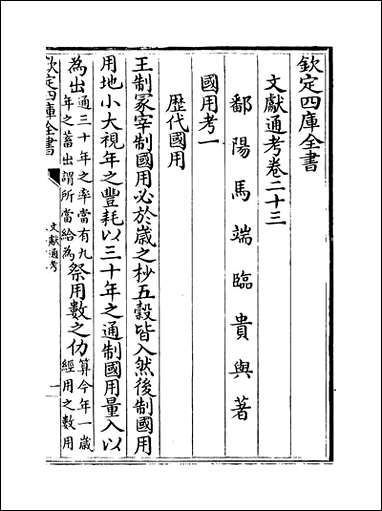 欽定四庫全書
文獻通考卷二十三
鄱陽馬端臨貴與著
國用考一
歴代國用
王制冡宰制國用必於歳之杪五穀皆入然後制國用
用地小大視年之豐耗以三十年之通制國用量入以
為出通三十年之率當有九年之蓄出謂所當給為祭用數之仂算今年一歳經用之數用
欽定四庫全書
文獻通考
一